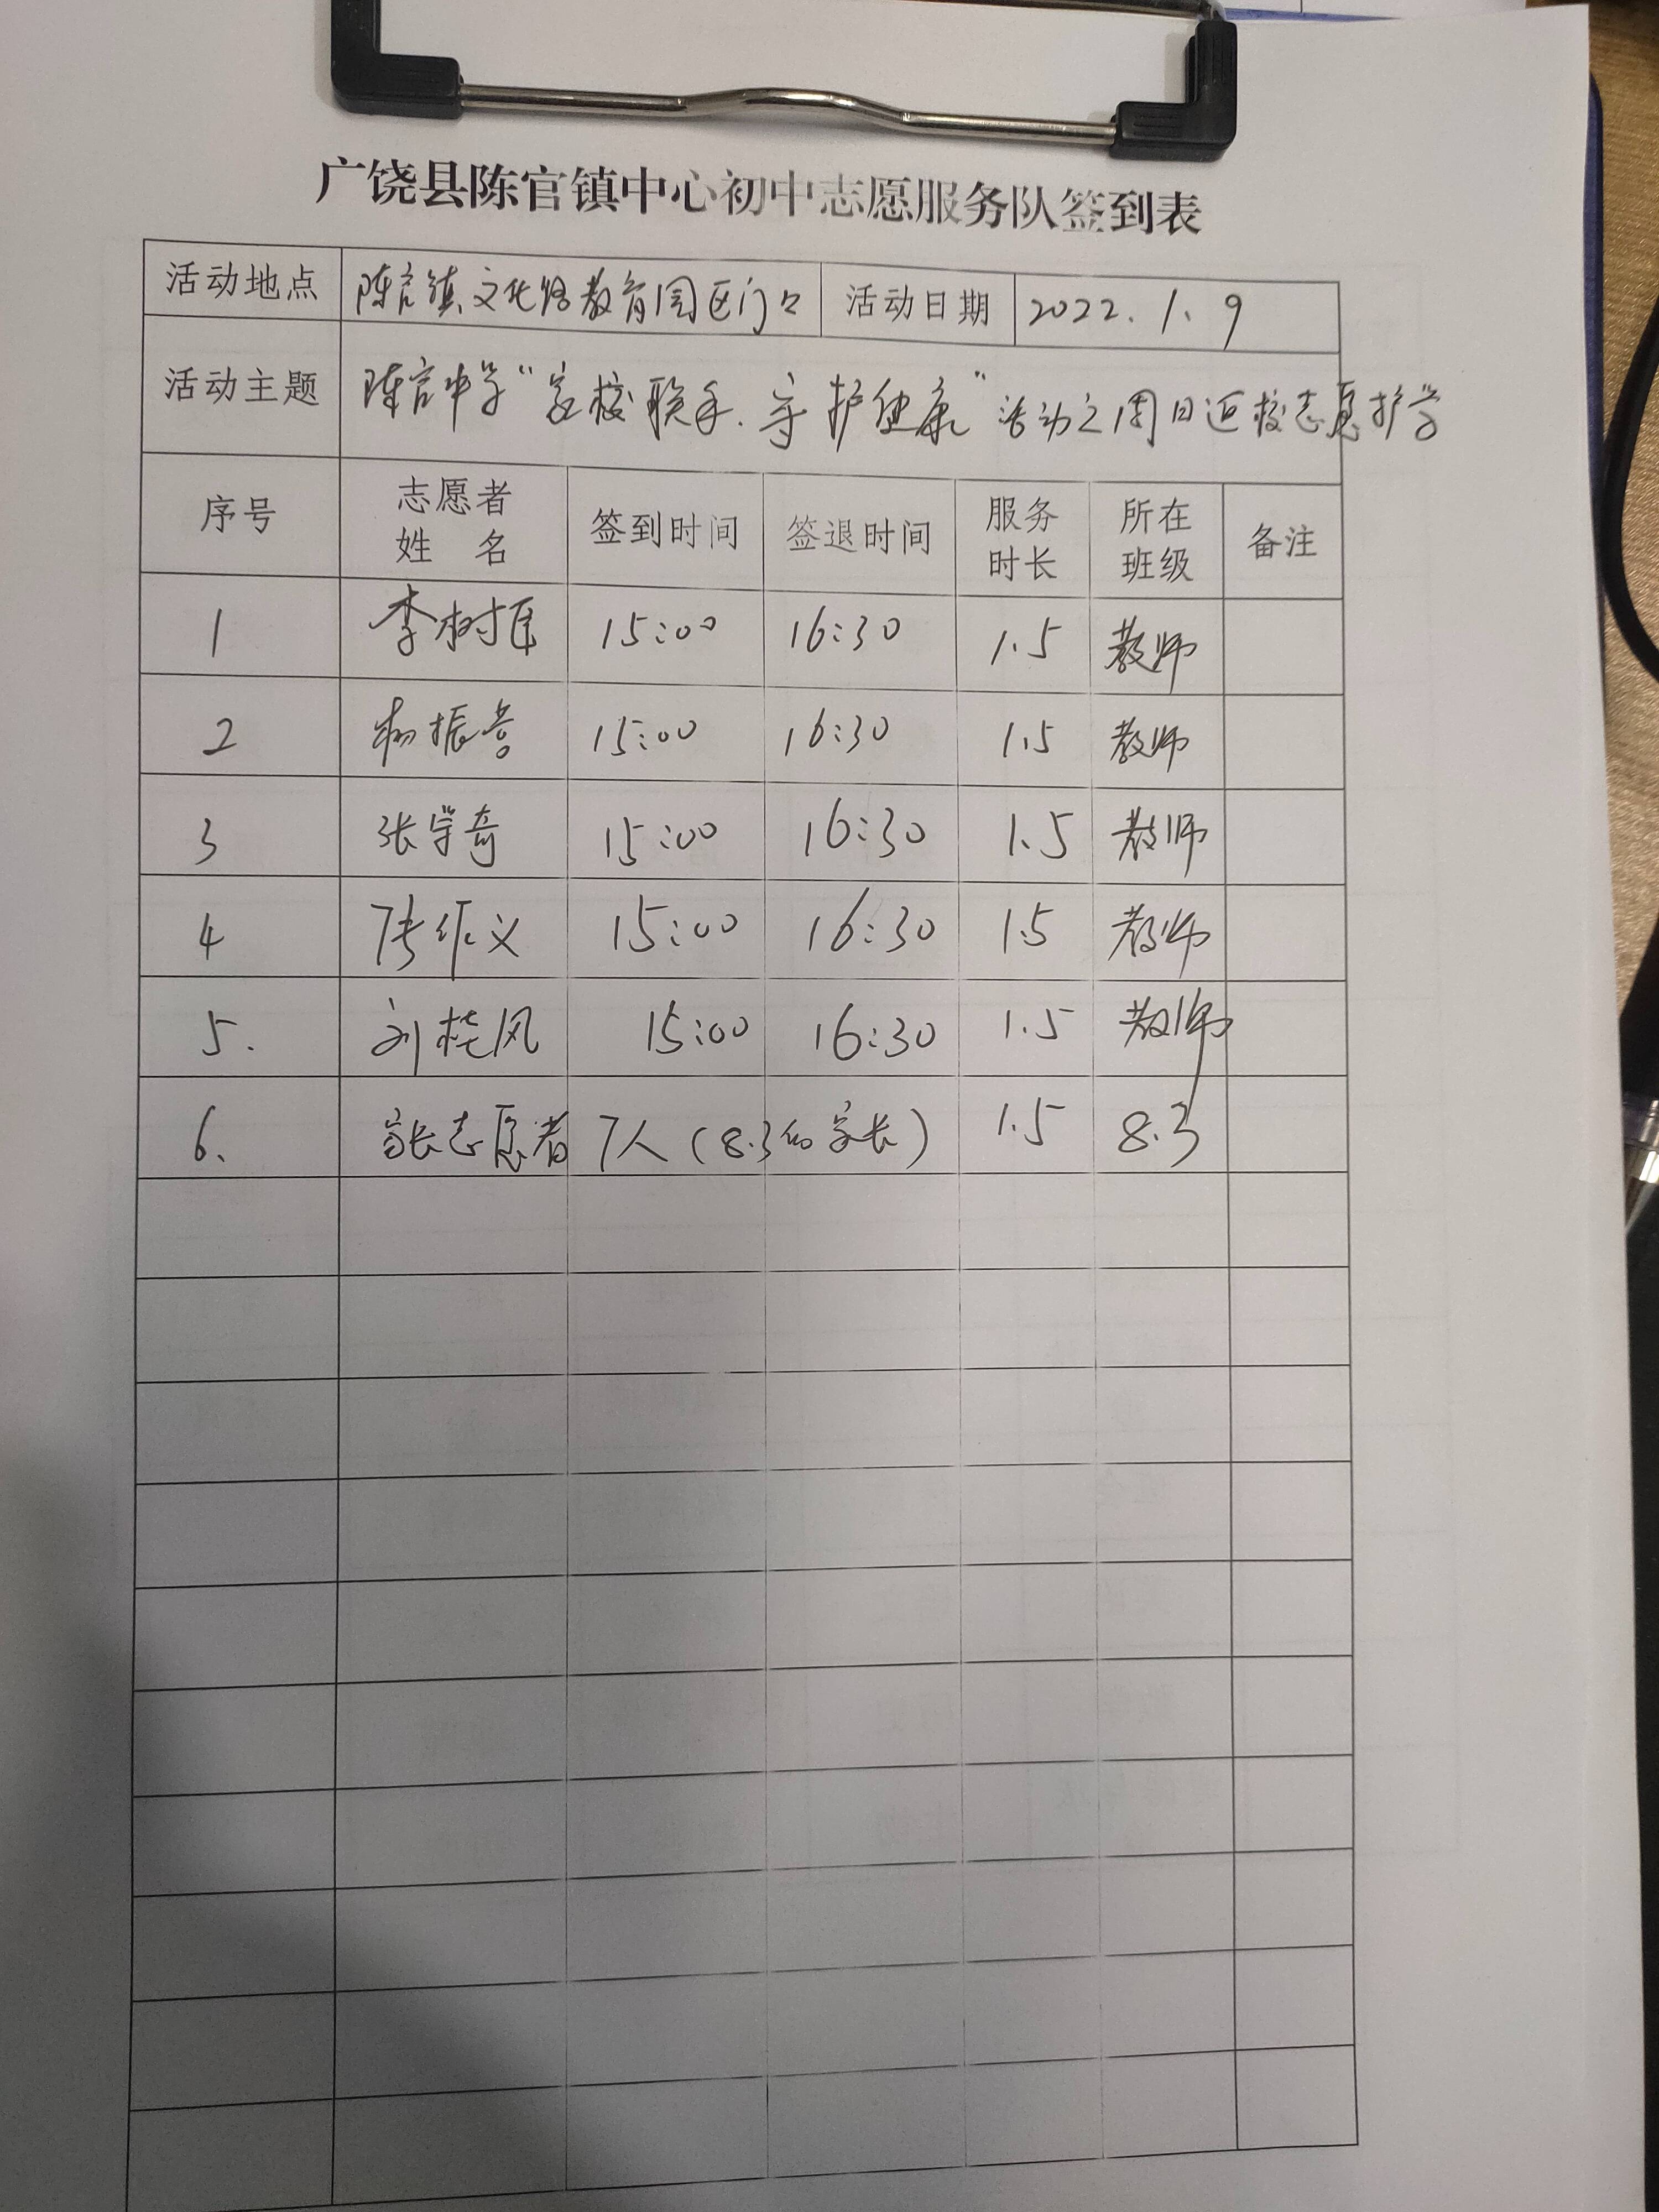 广饶县陈官镇中心初中志愿服务队签到表
活动地点 陈官镇文化路教育园区门口 活动日期 2022.1.9
活动主题 陈官中学“家校联手.守护健康”活动之周日返校志愿护学
序号 志愿者姓名 签到时间 签退时间 服务时长 所在班级 备注
1 李树 15:00 16:30 1.5 教师
2 杨振 15:00 16:30 1.5 教师
3 张学奇 15:00 16:30 1.5 教师
4 张作义 15:00 16:30 1.5 教师
5. 刘桂风 15:00 16:30 1.5 教师
6. 家长志愿者 7人(8.3的家长) 1.5 8.3